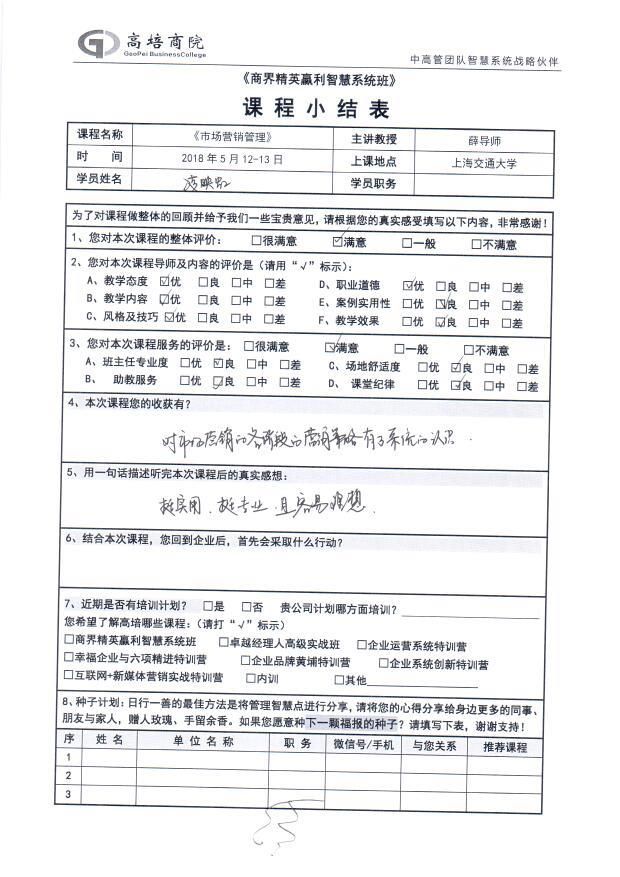 高培商院
GaoPei BusinessCollege
中高管团队智慧系统战略伙伴
《商界精英赢利智慧系统班》
课程小结表
课程名称 《市场营销管理》 主讲教授 薛导师
时 间 2018年5月12-13日 上课地点 上海交通大学
学员姓名 学员职务
为了对课程做整体的回顾并给予我们一些宝贵意见，请根据您的真实感受填写以下内容，非常感谢！
1、您对本次课程的整体评价： □很满意 ☑满意 □一般 □不满意
2、您对本次课程导师及内容的评价是（请用“√”标示）：
A、教学态度 ☑优 □良 □中 □差 D、职业道德 ☑优 □良 □中 □差
B、教学内容 ☑优 □良 □中 □差 E、案例实用性 □优 ☑良 □中 □差
C、风格及技巧 ☑优 □良 □中 □差 F、教学效果 □优 ☑良 □中 □差
3、您对本次课程服务的评价是： □很满意 ☑满意 □一般 □不满意
A、班主任专业度 □优 ☑良 □中 □差 C、场地舒适度 □优 ☑良 □中 □差
B、 助教服务 □优 ☑良 □中 □差 D、 课堂纪律 □优 ☑良 □中 □差
4、本次课程您的收获有？
对市场营销的各阶段的营销策略有了系统的认识.
5、用一句话描述听完本次课程后的真实感想：
挺实用、挺专业、且容易理想.
6、结合本次课程，您回到企业后，首先会采取什么行动？
7、近期是否有培训计划？ □是 □否 贵公司计划哪方面培训？
您希望了解高培哪些课程：（请打“√”标示）
□商界精英赢利智慧系统班 □卓越经理人高级实战班 □企业运营系统特训营
□幸福企业与六项精进特训营 □企业品牌黄埔特训营 □企业系统创新特训营
□互联网+新媒体营销实战特训营 □内训 □其他
8、种子计划：日行一善的最佳方法是将管理智慧点进行分享，请将您的心得分享给身边更多的同事、
朋友与家人，赠人玫瑰、手留余香。如果您愿意种下一颗福报的种子？请填写下表，谢谢支持！
序 姓 名 单 位 名 称 职 务 微信号/手机 与您关系 推荐课程
1
2
3